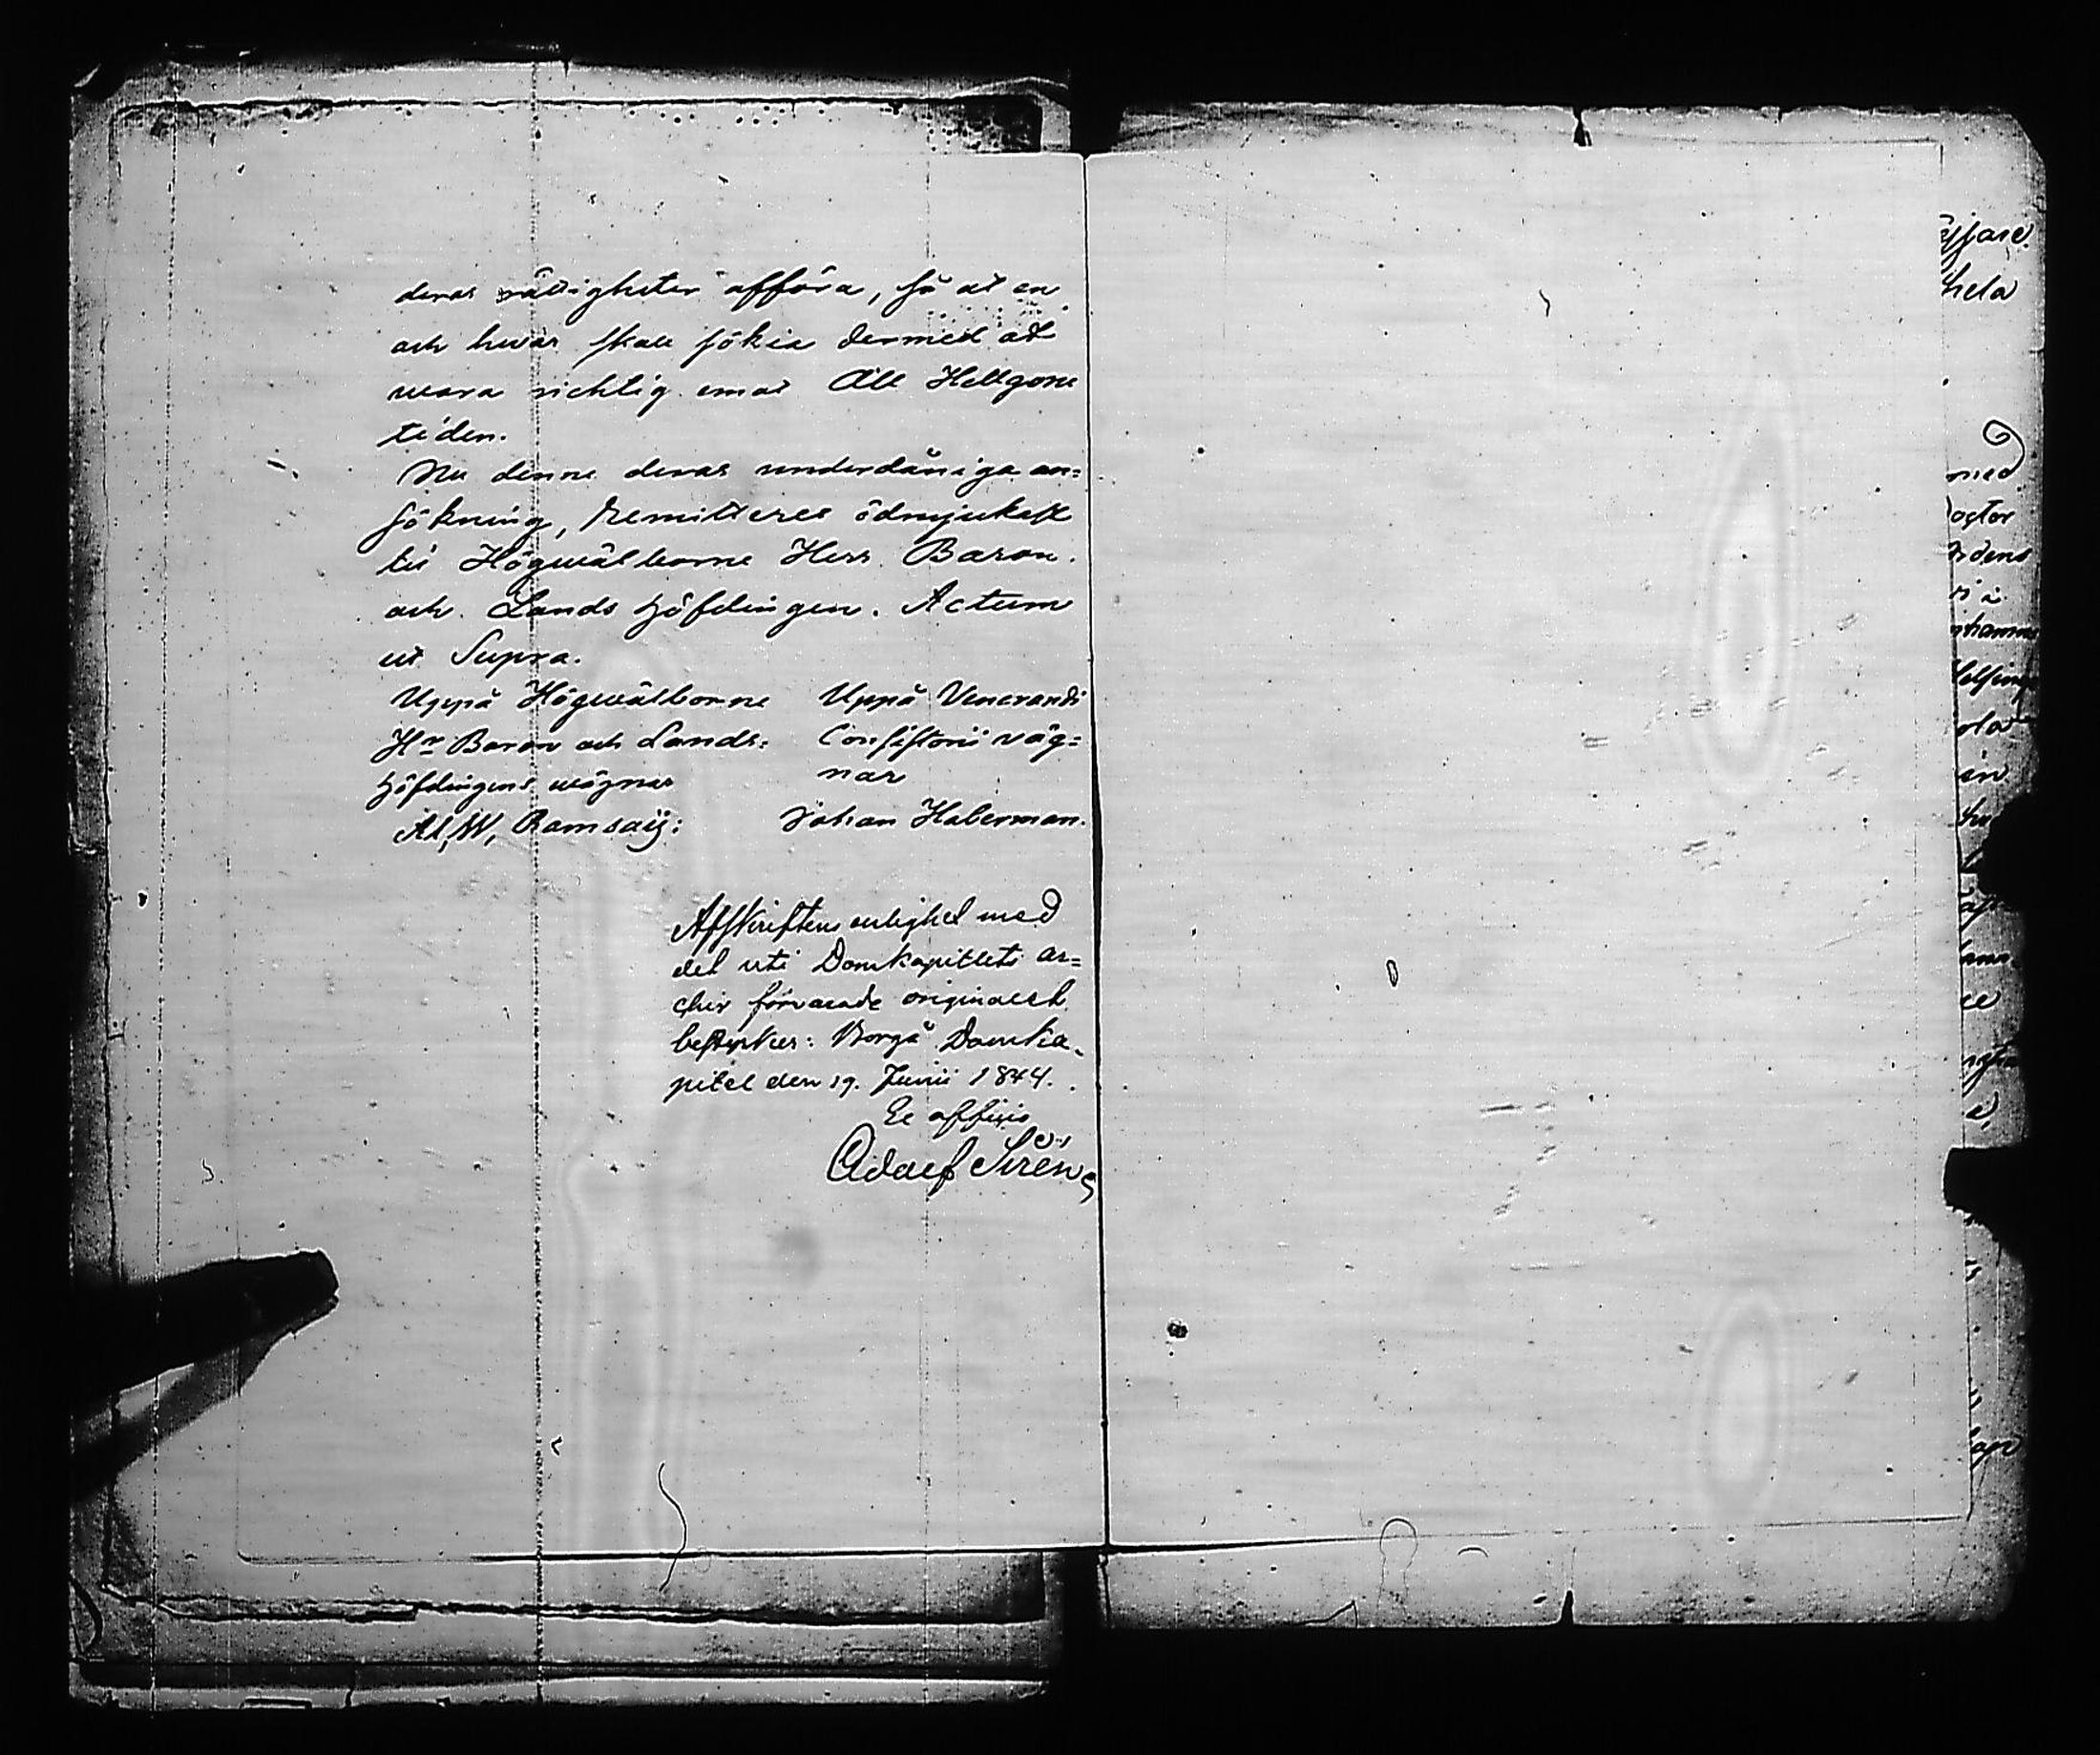 deras rättigheter afföra, så at en
och hwar skall sökia dermed at
wara richtig emot All Hellgone
tiden.
Nu denne deras underdåniga an=
sökning, Remitteres ödmjukast
till Högwälborne Herr Baron
och Lands höfdingen. Actum
ut Supra.
Uppå Högwälborne
Hr Baron och Lands=
höfdingens wägnar
A, W, Ramsaij:
Uppå Venerandi
Consistorii väg=
nar
Johan Haberman.
Afskriftens enlighet med
det uti Domkapitlets ar=
chiv förvarade originalet
bestyrker: Borgå Domka=
pitel den 19. Junii 1844.
Ex officio
Adolf Sirén
hela
med